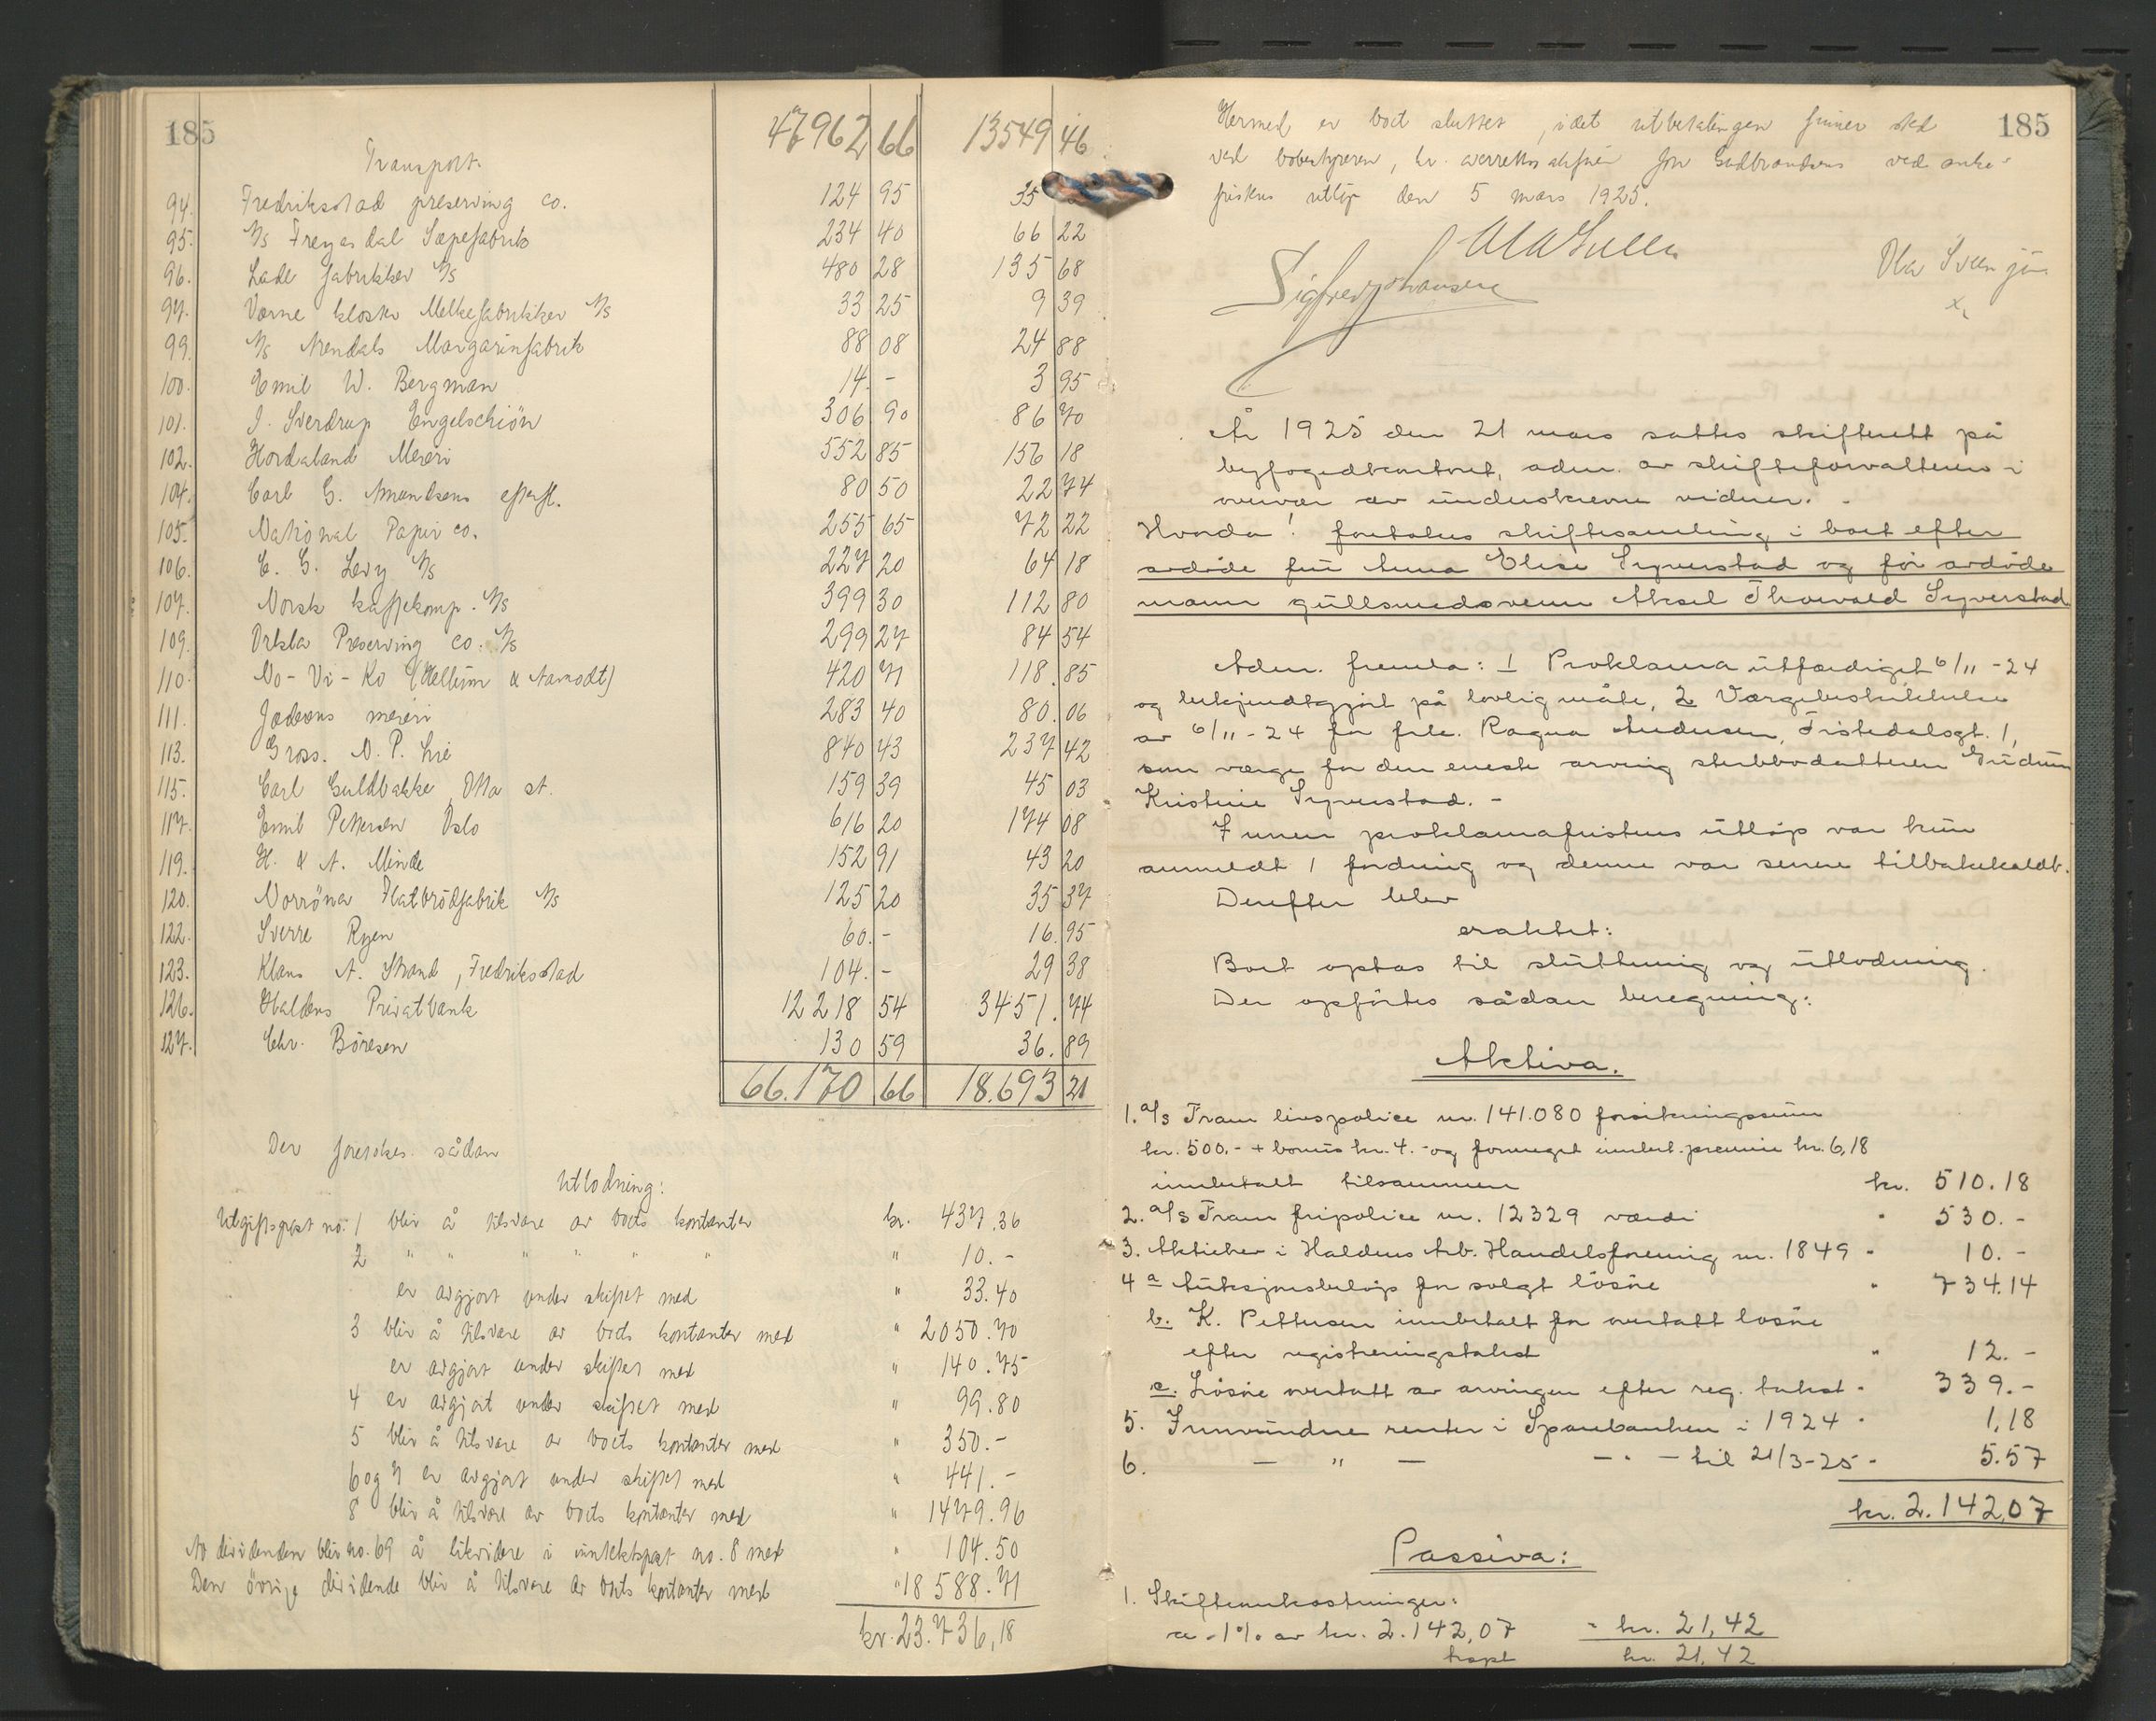 185
Transport. 47962 66 13549 46
94. Fredriksstad preserving co. 124 95 35
95. A/s Freyasdal Sæpefabrik 234 40 66 22
96. Lade fabrikker A/s 480 28 135 68
97. Værne kloster Melkefabrikker A/s 33 25 9 39
99. A/s Arendals Margarinfabrik 88 08 24 88
100. Emil W. Bergman 14. - 3 95
101. J. Sverdrup Engelschiøn 306 90 86 70
102. Hordaland Meieri 552 85 156 18
104. Carl G. Amundsens efterfl. 80 50 22 74
105. National Papir co. 255 65 72 22
106. C. G. Levy A/s 227 20 64 18
107. Norsk kaffekomp. A/s 399 30 112 80
109. Orkla Preserving co. A/s 299 27 84 54
110. No-Vi-Ko (Hellum & Aamodt) 420 71 118. 85
111. Jæderens meieri 283 40 80. 06
113. Gross. N. P. Lie 840 43 237 42
115. Carl Guldbakke, Otta st. 159 39 45 03
117. Emil Pettersen Oslo 616 20 174 08
119. H. & A. Minde 152 91 43 20
120. Norröna Flatbrödfabrik A/s 125 20 35 37
122. Sverre Ryen 60. - 16. 95
123. Klaus A. Strand, Fredriksstad 104. - 29 38
126. Haldens Privatbank 12218 54 3451. 74
127. Chr. Börresen 130 59 36. 89
66.170 66 18.693 21
Der foretokes sådan
Utlodning:
Utgiftspost no. 1 blir å tilsvare av boets kontanter kr. 437.36
2 " " " " " " " 10. -
er avgjort under skiftet med " 33.40
3 blir å tilsvare av boets kontanter med " 2050.70
er avgjort under skiftet med " 140.75
4 er avgjort under skiftet med " 99.80
5 blir å tilsvare av boets kontanter med " 350. -
6 og 7 er avgjort under skiftet med " 441. -
8 blir å tilsvare av boets kontanter med " 1479.96
Av dividenden blir no. 69 å likvidere i inntektspost no. 8 med " 104.50
Den övrige dividende blir å tilsvare av boets kontanter med " 18588.71
kr. 23.736,18
185
Hermed er boet sluttet, idet utbetalingen finner sted
ved bobestyreren, hr. overrettssakfører Gudbrandsen ved anke-
fristens utløp den 5 mars 1925.
Sigfred Johansen
Ola Sveen jun
År 1925 den 21 mars sattes skifterett på
byfogedkontoret, adm. av skifteforvalteren i
overvær av underskrevne vidner. -
Hvorda! foretokes skiftesamling i boet efter
avdöde fru Anna Elise Syverstad og för avdöde
mann gullsmedsvenn Aksel Thorvald Syverstad
Adm. fremla: 1 Proklama utfærdiget 6/11-24
og bekjendtgjort på lovlig måte, 2 Værgebeskikkelse
av 6/11-24 for frk. Ragna Andersen, Tistedalsgt. 1,
som værge for den eneste arving stebbodatteren Gudrun
Kristine Syverstad. -
Innen proklamafristens utlöp var kun
anmeldt 1 fordring og denne var senere tilbakekaldt.
Derefter blev
eraktet:
Boet optas til sluttning og utlodning.
Der opförtes sådan beregning:
Aktiva.
1. A/s Fram livspolice nr. 141.080 forsikringssum
kr. 500.- + bonus kr. 4.- og formeget innbet. premie kr. 6,18
innbetalt tilsammen kr. 510.18
2. A/s Fram fripolice nr. 12329 værdi " 530. -
3. Aktiebev i Haldens Arb. Handelsforening nr. 1849 " 10. -
4 a Auksjonsbelöp for solgt lösöre " 734.14
b. K. Pettersen innbetalt for overtatt lösöre
efter registreringstakst " 12. -
c. Lösöre overtatt av arvingen efter reg. takst " 339. -
5. Innvundne renter i Sparebanken i 1924 " 1,18
6. — " — — " — til 21/3-25 " 5.57
kr. 2.142,07
Passiva:
1. Skifteomkostninger:
a - 1% av kr. 2.142,07 - kr. 21,42
kr. 21,42